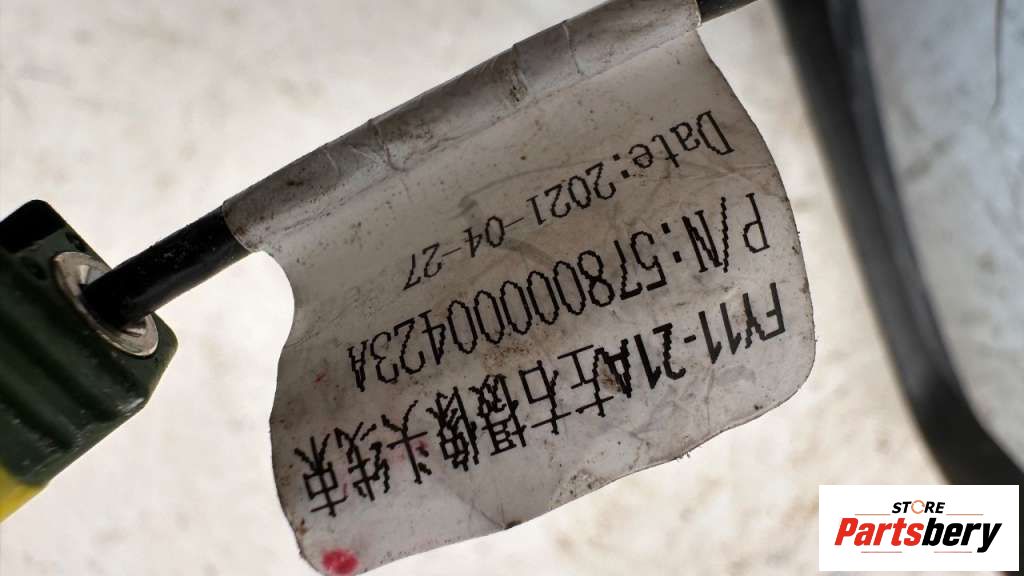 FY11-21A左右摄像头线束
P/N:5780000423A
Date:2021-04-27
STORE
Partsbery